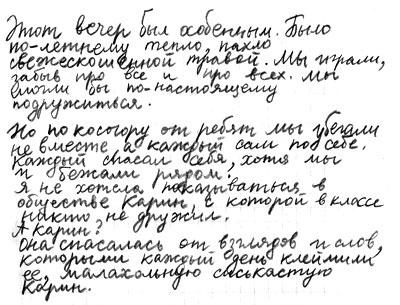 Этот вечер был особенным. Было
по-летнему тепло, пахло
свежескошенной травой. Мы играли,
забыв про все и про всех. мы
могли бы по-настоящему
подружиться.
Но по косогору от ребят мы убегали
не вместе, а каждый сам по себе.
Каждый спасал себя, хотя мы
и бежали рядом.
я не хотела показываться в
обществе Карин, с которой в классе
никто не дружил.
А Карин?
Она спасалась от взглядов и слов,
которыми каждый день клеймили
ее, малахольную сиськастую
Карин.